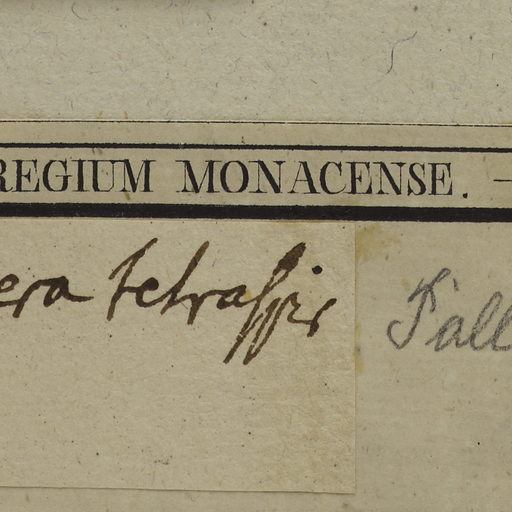 REGIUM MONACENSE. —
era tetraspis
Pall